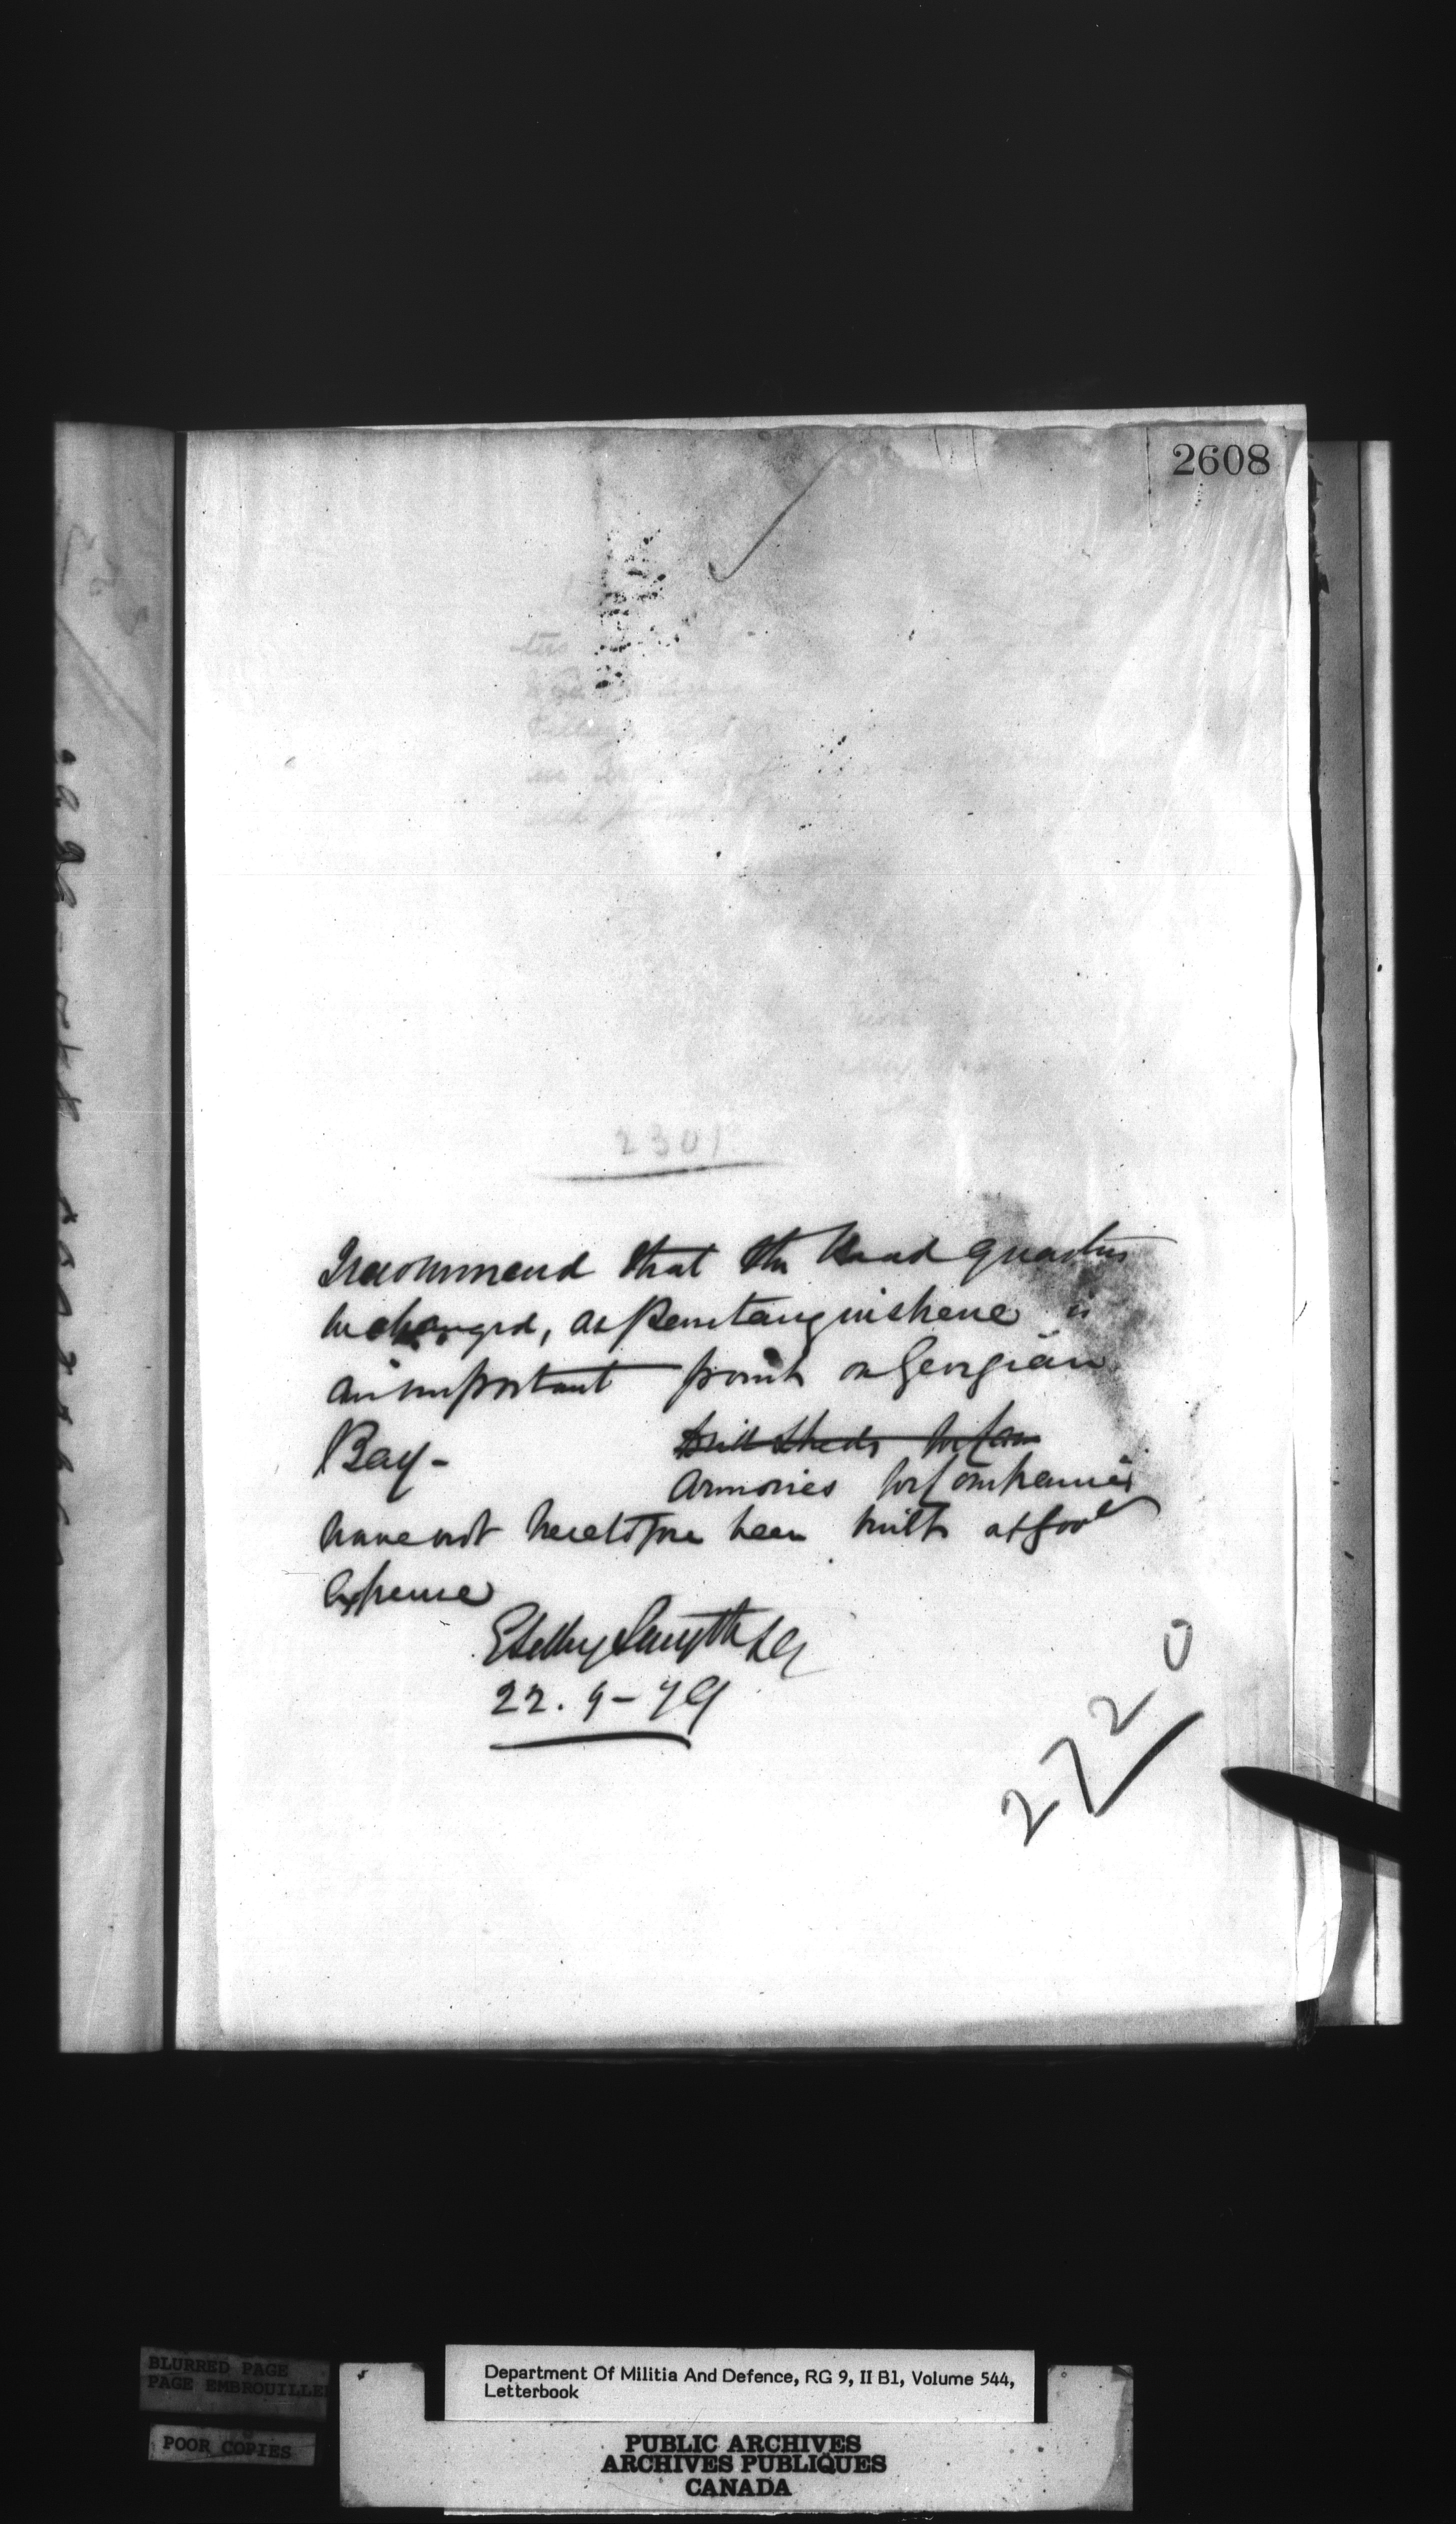 2608
2301
I recommend that the Head Quarters
be changed, as Penetanguishene is
an important point on Georgian
Bay -
Drill Sheds for Com
Armories for Companies
have not heretofore been built at Govt
expense
ESelby Smyth LG
22. 9 - 79
2220
BLURRED PAGE
PAGE EMBROUILLEE
POOR COPIES
Department Of Militia And Defence, RG 9, II B1, Volume 544,
Letterbook
PUBLIC ARCHIVES
ARCHIVES PUBLIQUES
CANADA